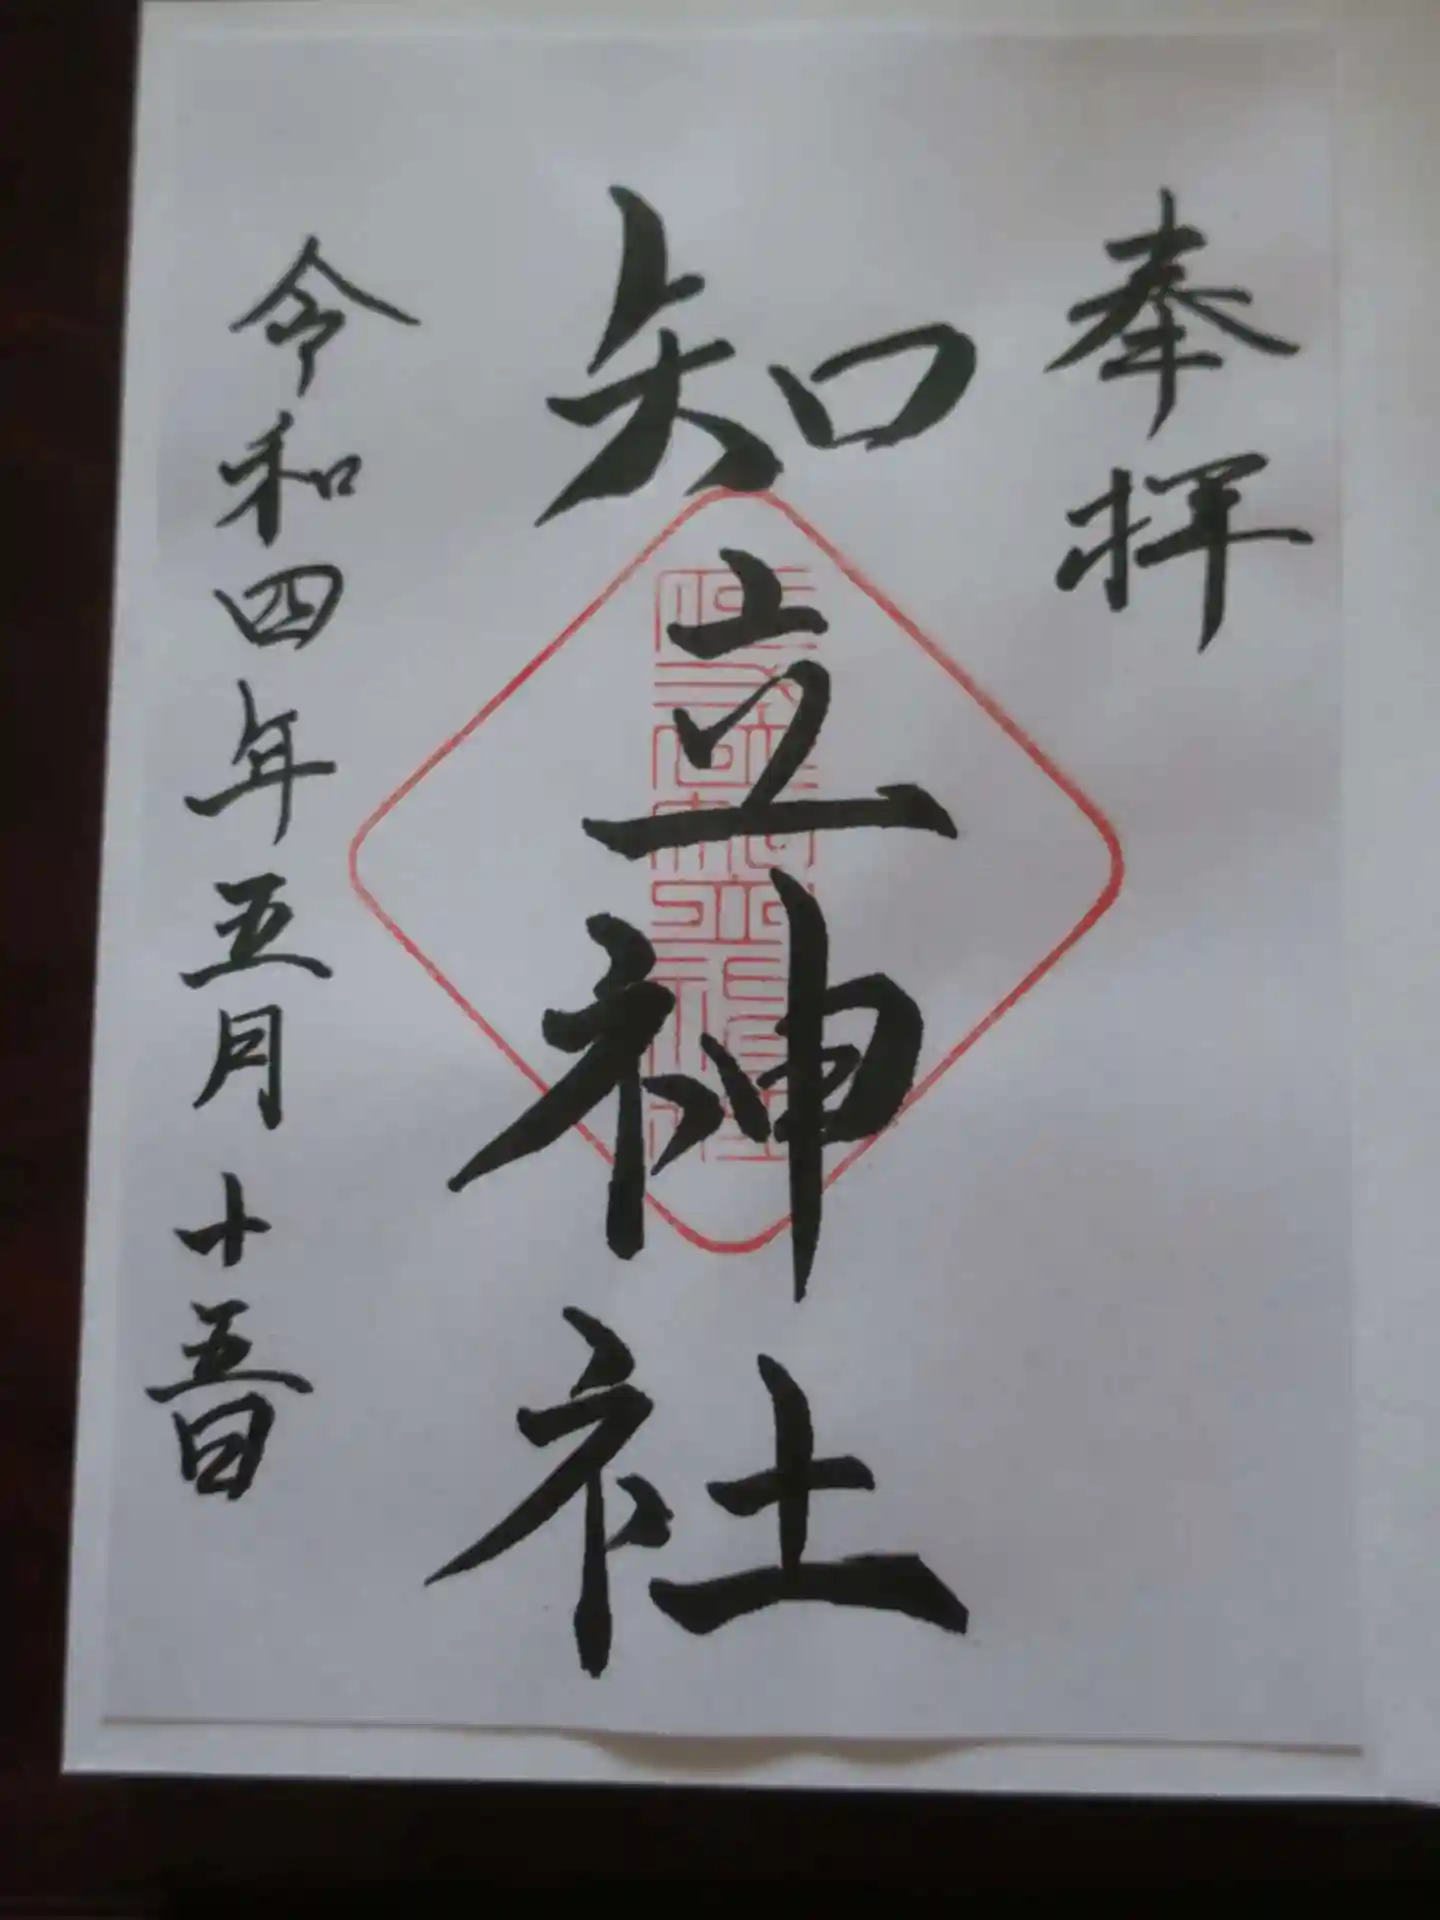 奉拝
知立神社
令和四年五月十五日